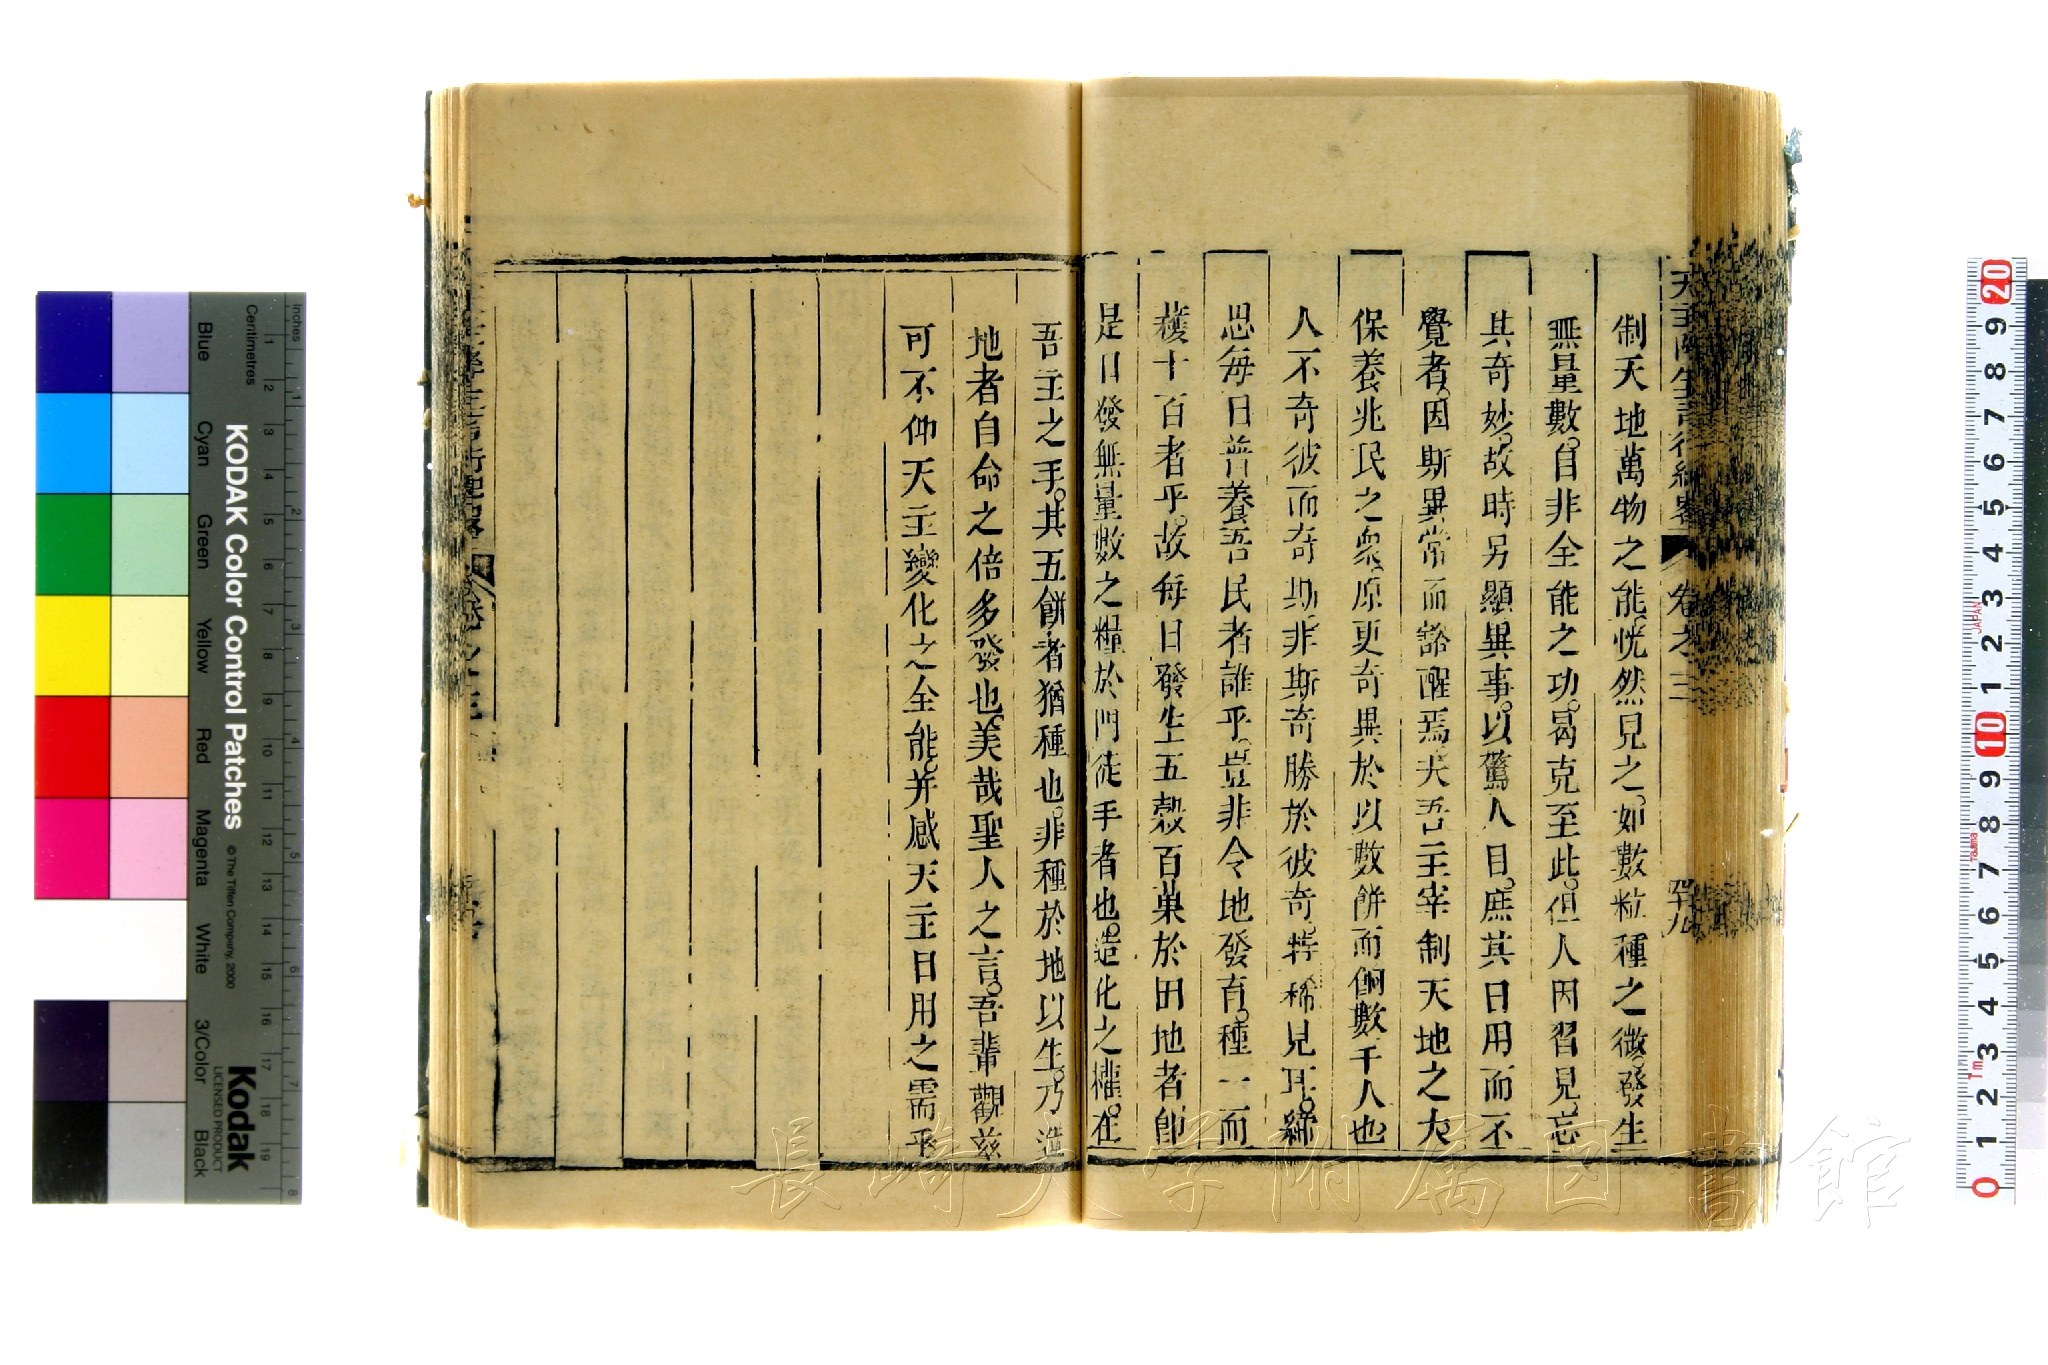 天主降生言行紀畧 卷之三 四十九
制天地萬物之能。恍然見之。如數粒種之微。發生
無量數。自非全能之功。曷克至此。但人因習見。忘
其奇妙。故時另顯異事。以驚人目。庶其日用而不
覺者。因斯異常而諮醒焉。夫吾主宰制天地之大
保養兆民之衆。原更奇異於以數餅而餉數千人也
人不奇彼而奇斯。非斯奇勝於彼奇。特稀見耳。締
思每日普養吾民者誰乎。豈非令地發育。種一而
穫十百者乎。故每日發生五穀百菓於田地者。卽
是日發無量數之糧於門徒手者也。造化之權。在
吾主之手。其五餅者猶種也。非種於地以生。乃造
地者自命之倍多發也。美哉聖人之言。吾輩觀玆
可不仰天主變化之全能。并感天主日用之需乎
KODAK Color Control Patches
© The Tiffen Company, 2000
Kodak
LICENSED PRODUCT
Inches
Centimetres
Blue
Cyan
Green
Yellow
Red
Magenta
White
3/Color
Black
長崎大学附属図書館